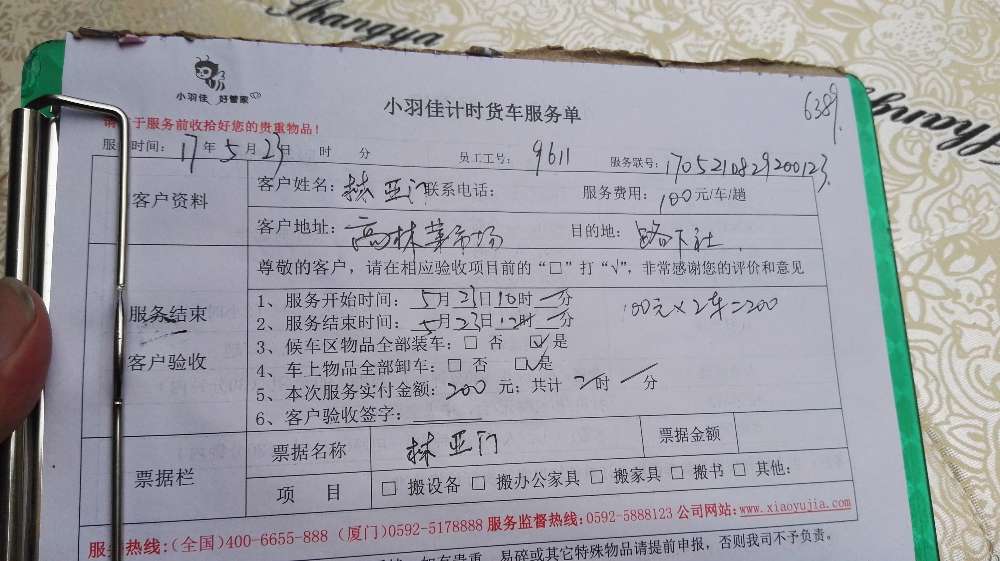 Shangya
小羽佳 好管家
小羽佳计时货车服务单
6389
请于服务前收拾好您的贵重物品!
服务时间: 17年5月23日 时 分 员工工号: 9611 服务联号: 1705210829200123
客户资料
客户姓名: 林亚门 联系电话: 服务费用: 100元/车/趟
客户地址: 高林菜市场 目的地: 路下社
服务结束
客户验收
尊敬的客户,请在相应验收项目前的“□”打“√”,非常感谢您的评价和意见
1、服务开始时间: 5月23日10时一分
100元×2车=200
2、服务结束时间: 5月23日12时一分
3、候车区物品全部装车: □ 否 ☑ 是
4、车上物品全部卸车: □ 否 ☑ 是
5、本次服务实付金额: 200 元; 共计 2 时 一 分
6、客户验收签字:
票据栏
票据名称 林亚门 票据金额
项 目 □ 搬设备 □ 搬办公家具 □ 搬家具 □ 搬书 □ 其他:
服务热线:(全国)400-6655-888 (厦门)0592-5178888 服务监督热线:0592-5888123 公司网站:www.xiaoyujia.com
如有贵重、易碎或其它特殊物品请提前申报,否则我司不予负责。